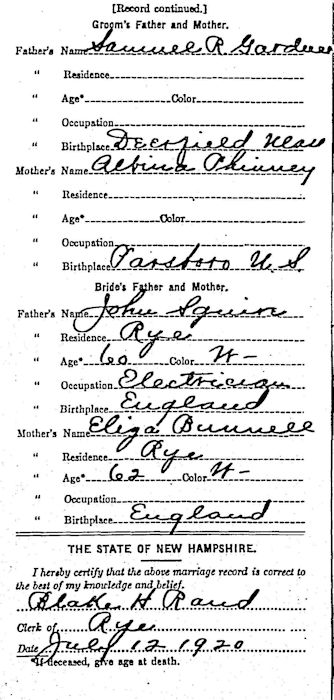 [Record continued.]
Groom's Father and Mother.
Father's Name Samuel R. Gardner
" Residence
" Age* Color
" Occupation
" Birthplace Deerfield Mass
Mother's Name Albina Phinney
" Residence
" Age* Color
" Occupation
" Birthplace Parsboro N. S.
Bride's Father and Mother.
Father's Name John Squire
" Residence Rye
" Age* 60 Color W-
" Occupation Electrician
" Birthplace England
Mother's Name Eliza Bunnell
" Residence Rye
" Age* 62 Color W-
" Occupation
" Birthplace England
THE STATE OF NEW HAMPSHIRE.
I hereby certify that the above marriage record is correct to
the best of my knowledge and belief.
Blake H. Rand
Clerk of Rye
Date July 12 1920
*If deceased, give age at death.